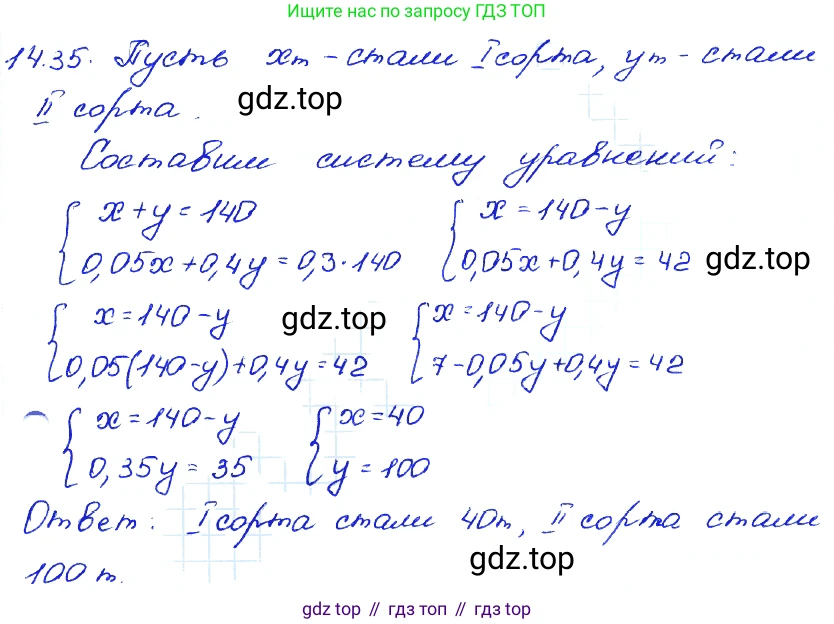 Ищите нас по запросу ГДЗ ТОП
14.35. Пусть xт - стали I сорта, yт - стали
II сорта. gdz.top
Составим систему уравнений:
{ x + y = 140 { x = 140 - y
0,05x + 0,4y = 0,3·140 0,05x + 0,4y = 42 gdz.top
{ x = 140 - y gdz.top { x = 140 - y
0,05(140 - y) + 0,4y = 42 7 - 0,05y + 0,4y = 42
{ x = 140 - y { x = 40
0,35y = 35 y = 100
Ответ: I сорта стали 40т, II сорта стали
100 т. gdz.top
gdz top // гдз топ // гдз.top